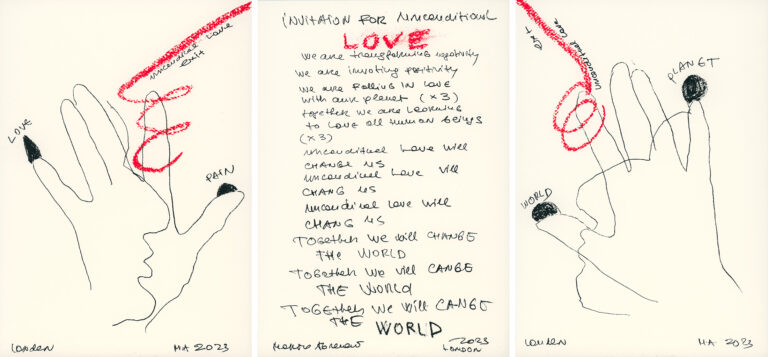 UNCONDICAL LOVE
EXIT
LOVE
PAIN
LONDON
MA 2023
INVITAION FOR UNCONDITIONAL
LOVE
WE ARE TRANSFORMING NEGATIVITY
WE ARE INVOTING POSITIVITY
WE ARE FOLLING IN LOVE
WITH OUR PLANET (×3)
TOGETHER WE ARE LEARNING
TO LOVE ALL HUMAN BEINGS
(×3)
UNCONDITIONAL LOVE WILL
CHANGE US
UNCONDITIONAL LOVE WILL
CHANG US
UNCONDICINAL LOVE WILL
CHANG US
TOGETHER WE WILL CHANGE
THE WORLD
TOGETHER WE WILL CANGE
THE WORLD
TOGETHER WE WILL CANGE
THE WORLD
2023
LONDON
EXIT
UNCONDITIONAL LOVE
PLANET
WORLD
LONDON
MA 2023